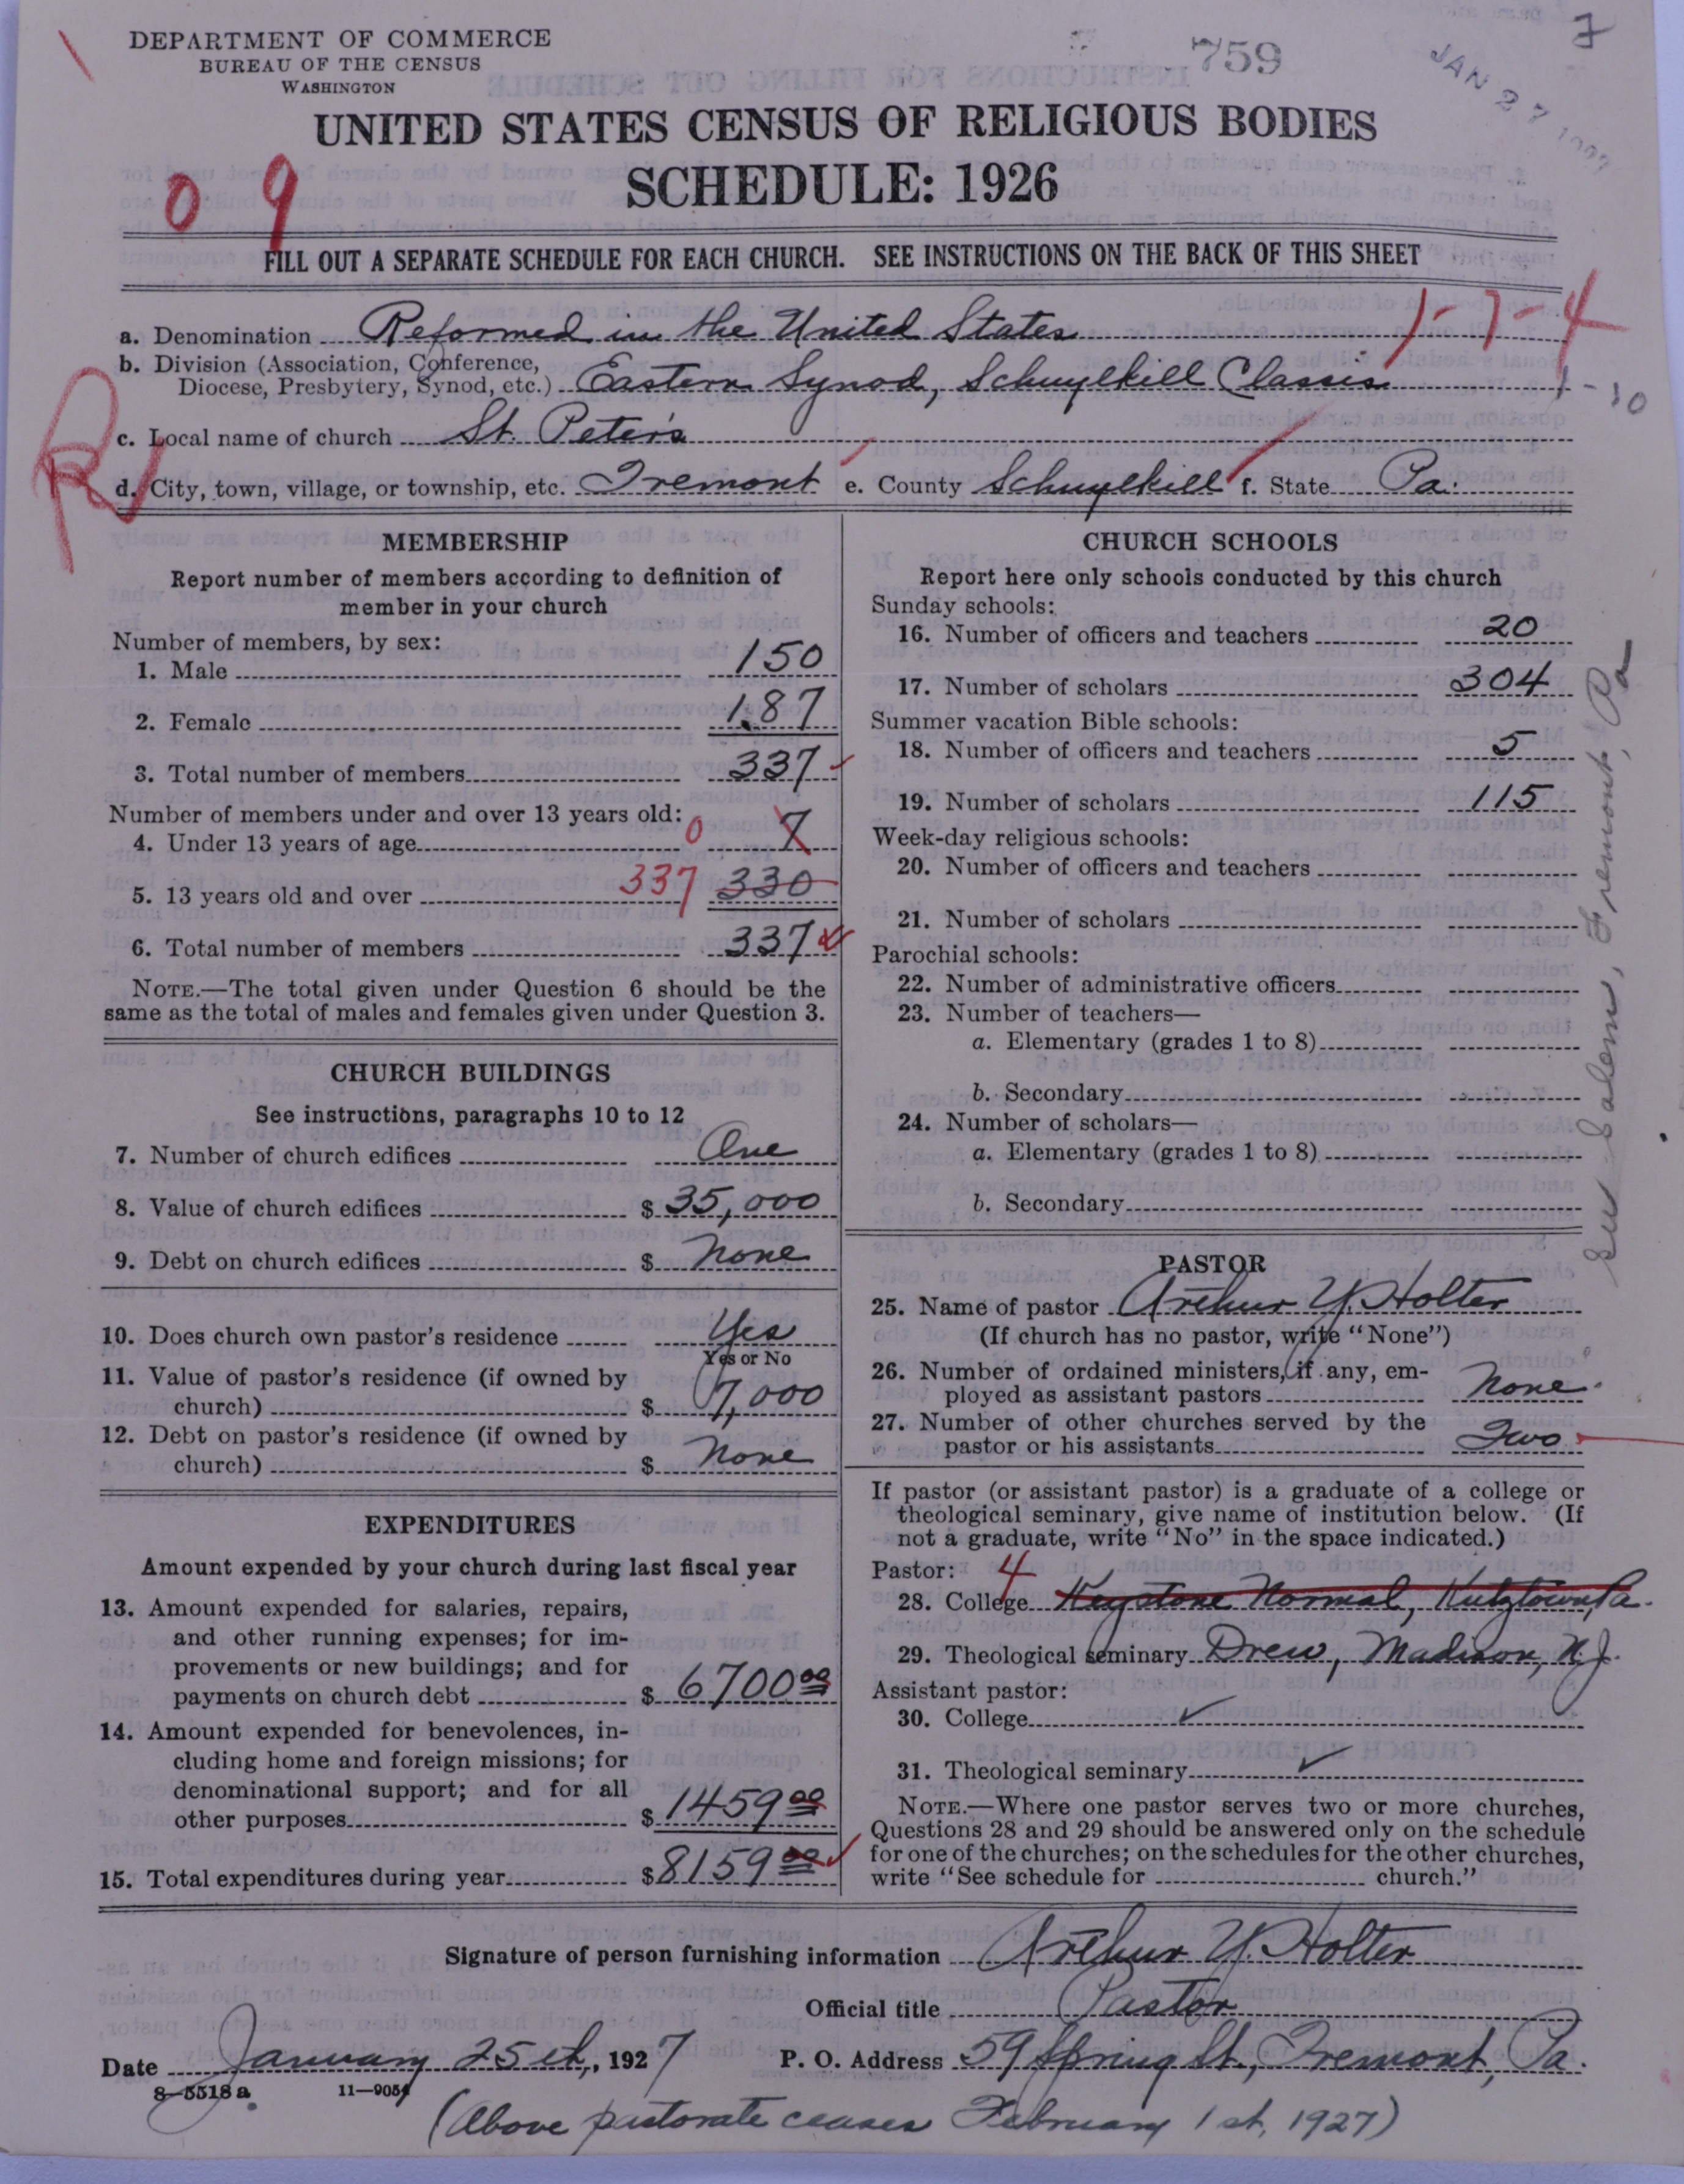 DEPARTMENT OF COMMERCE
BUREAU OF THE CENSUS
WASHINGTON
759
7
JAN 27
UNITED STATES CENSUS OF RELIGIOUS BODIES
SCHEDULE: 1926
0 9
FILL OUT A SEPARATE SCHEDULE FOR EACH CHURCH. SEE INSTRUCTIONS ON THE BACK OF THIS SHEET
1-7-4
a. Denomination Reformed in the United States
b. Division (Association, Conference,
Diocese, Presbytery, Synod, etc.) Eastern Synod, Schuylkill Classis
1-10
c. Local name of church St. Peter's
R
d. City, town, village, or township, etc. Tremont e. County Schuylkill f. State Pa.
MEMBERSHIP
Report number of members according to definition of
member in your church
Number of members, by sex:
1. Male 150
2. Female 187
3. Total number of members 337
Number of members under and over 13 years old:
4. Under 13 years of age 0 7
5. 13 years old and over 337 330
6. Total number of members 337
NOTE.—The total given under Question 6 should be the
same as the total of males and females given under Question 3.
CHURCH BUILDINGS
See instructions, paragraphs 10 to 12
7. Number of church edifices One
8. Value of church edifices $ 35,000
9. Debt on church edifices $ None
10. Does church own pastor's residence Yes
Yes or No
11. Value of pastor's residence (if owned by
church) $ 7,000
12. Debt on pastor's residence (if owned by
church) $ None
EXPENDITURES
Amount expended by your church during last fiscal year
13. Amount expended for salaries, repairs,
and other running expenses; for im-
provements or new buildings; and for
payments on church debt $ 6700 00
14. Amount expended for benevolences, in-
cluding home and foreign missions; for
denominational support; and for all
other purposes $ 1459 00
15. Total expenditures during year $ 8159 00
CHURCH SCHOOLS
Report here only schools conducted by this church
Sunday schools:
16. Number of officers and teachers 20
17. Number of scholars 304
Summer vacation Bible schools:
18. Number of officers and teachers 5
19. Number of scholars 115
Week-day religious schools:
20. Number of officers and teachers
21. Number of scholars
Parochial schools:
22. Number of administrative officers
23. Number of teachers—
a. Elementary (grades 1 to 8)
b. Secondary
24. Number of scholars—
a. Elementary (grades 1 to 8)
b. Secondary
Salem, Tremont, Pa
PASTOR
25. Name of pastor Arthur Y. Holter
(If church has no pastor, write "None")
26. Number of ordained ministers, if any, em-
ployed as assistant pastors None.
27. Number of other churches served by the
pastor or his assistants Two
If pastor (or assistant pastor) is a graduate of a college or
theological seminary, give name of institution below. (If
not a graduate, write "No" in the space indicated.)
Pastor: 4
28. College Keystone Normal, Kutztown, Pa.
29. Theological seminary Drew, Madison, N.J.
Assistant pastor:
30. College
31. Theological seminary
NOTE.—Where one pastor serves two or more churches,
Questions 28 and 29 should be answered only on the schedule
for one of the churches; on the schedules for the other churches,
write "See schedule for church."
Signature of person furnishing information Arthur Y. Holter
Official title Pastor
Date January 25th, 1927 P. O. Address 59 Spring St., Tremont, Pa.
8-5518 a 11-9054
(Above pastorate ceases February 1st, 1927)